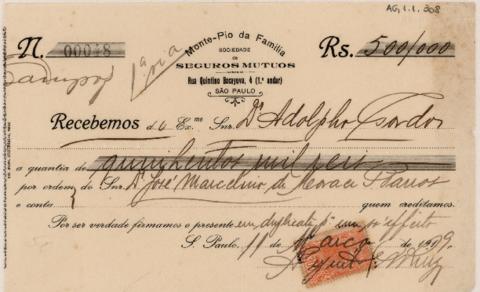 AG.1.1.308
N. 00048
1ª via
Monte-Pio da Familia
SOCIEDADE
DE
SEGUROS MUTUOS
Rua Quintino Bocayuva, 4 (1.º andar)
SÃO PAULO
Rs. 500/000
Recebemos do Exmo Snr. Dr Adolpho Gordo
a quantia de quinhentos mil reis
por ordem do Snr. Dr José Marcelino de Moraes Barros
e conta quem creditamos.
Por ser verdade firmamos o presente em duplicata p. um só effeito
S. Paulo, 11 de Março de 1909.